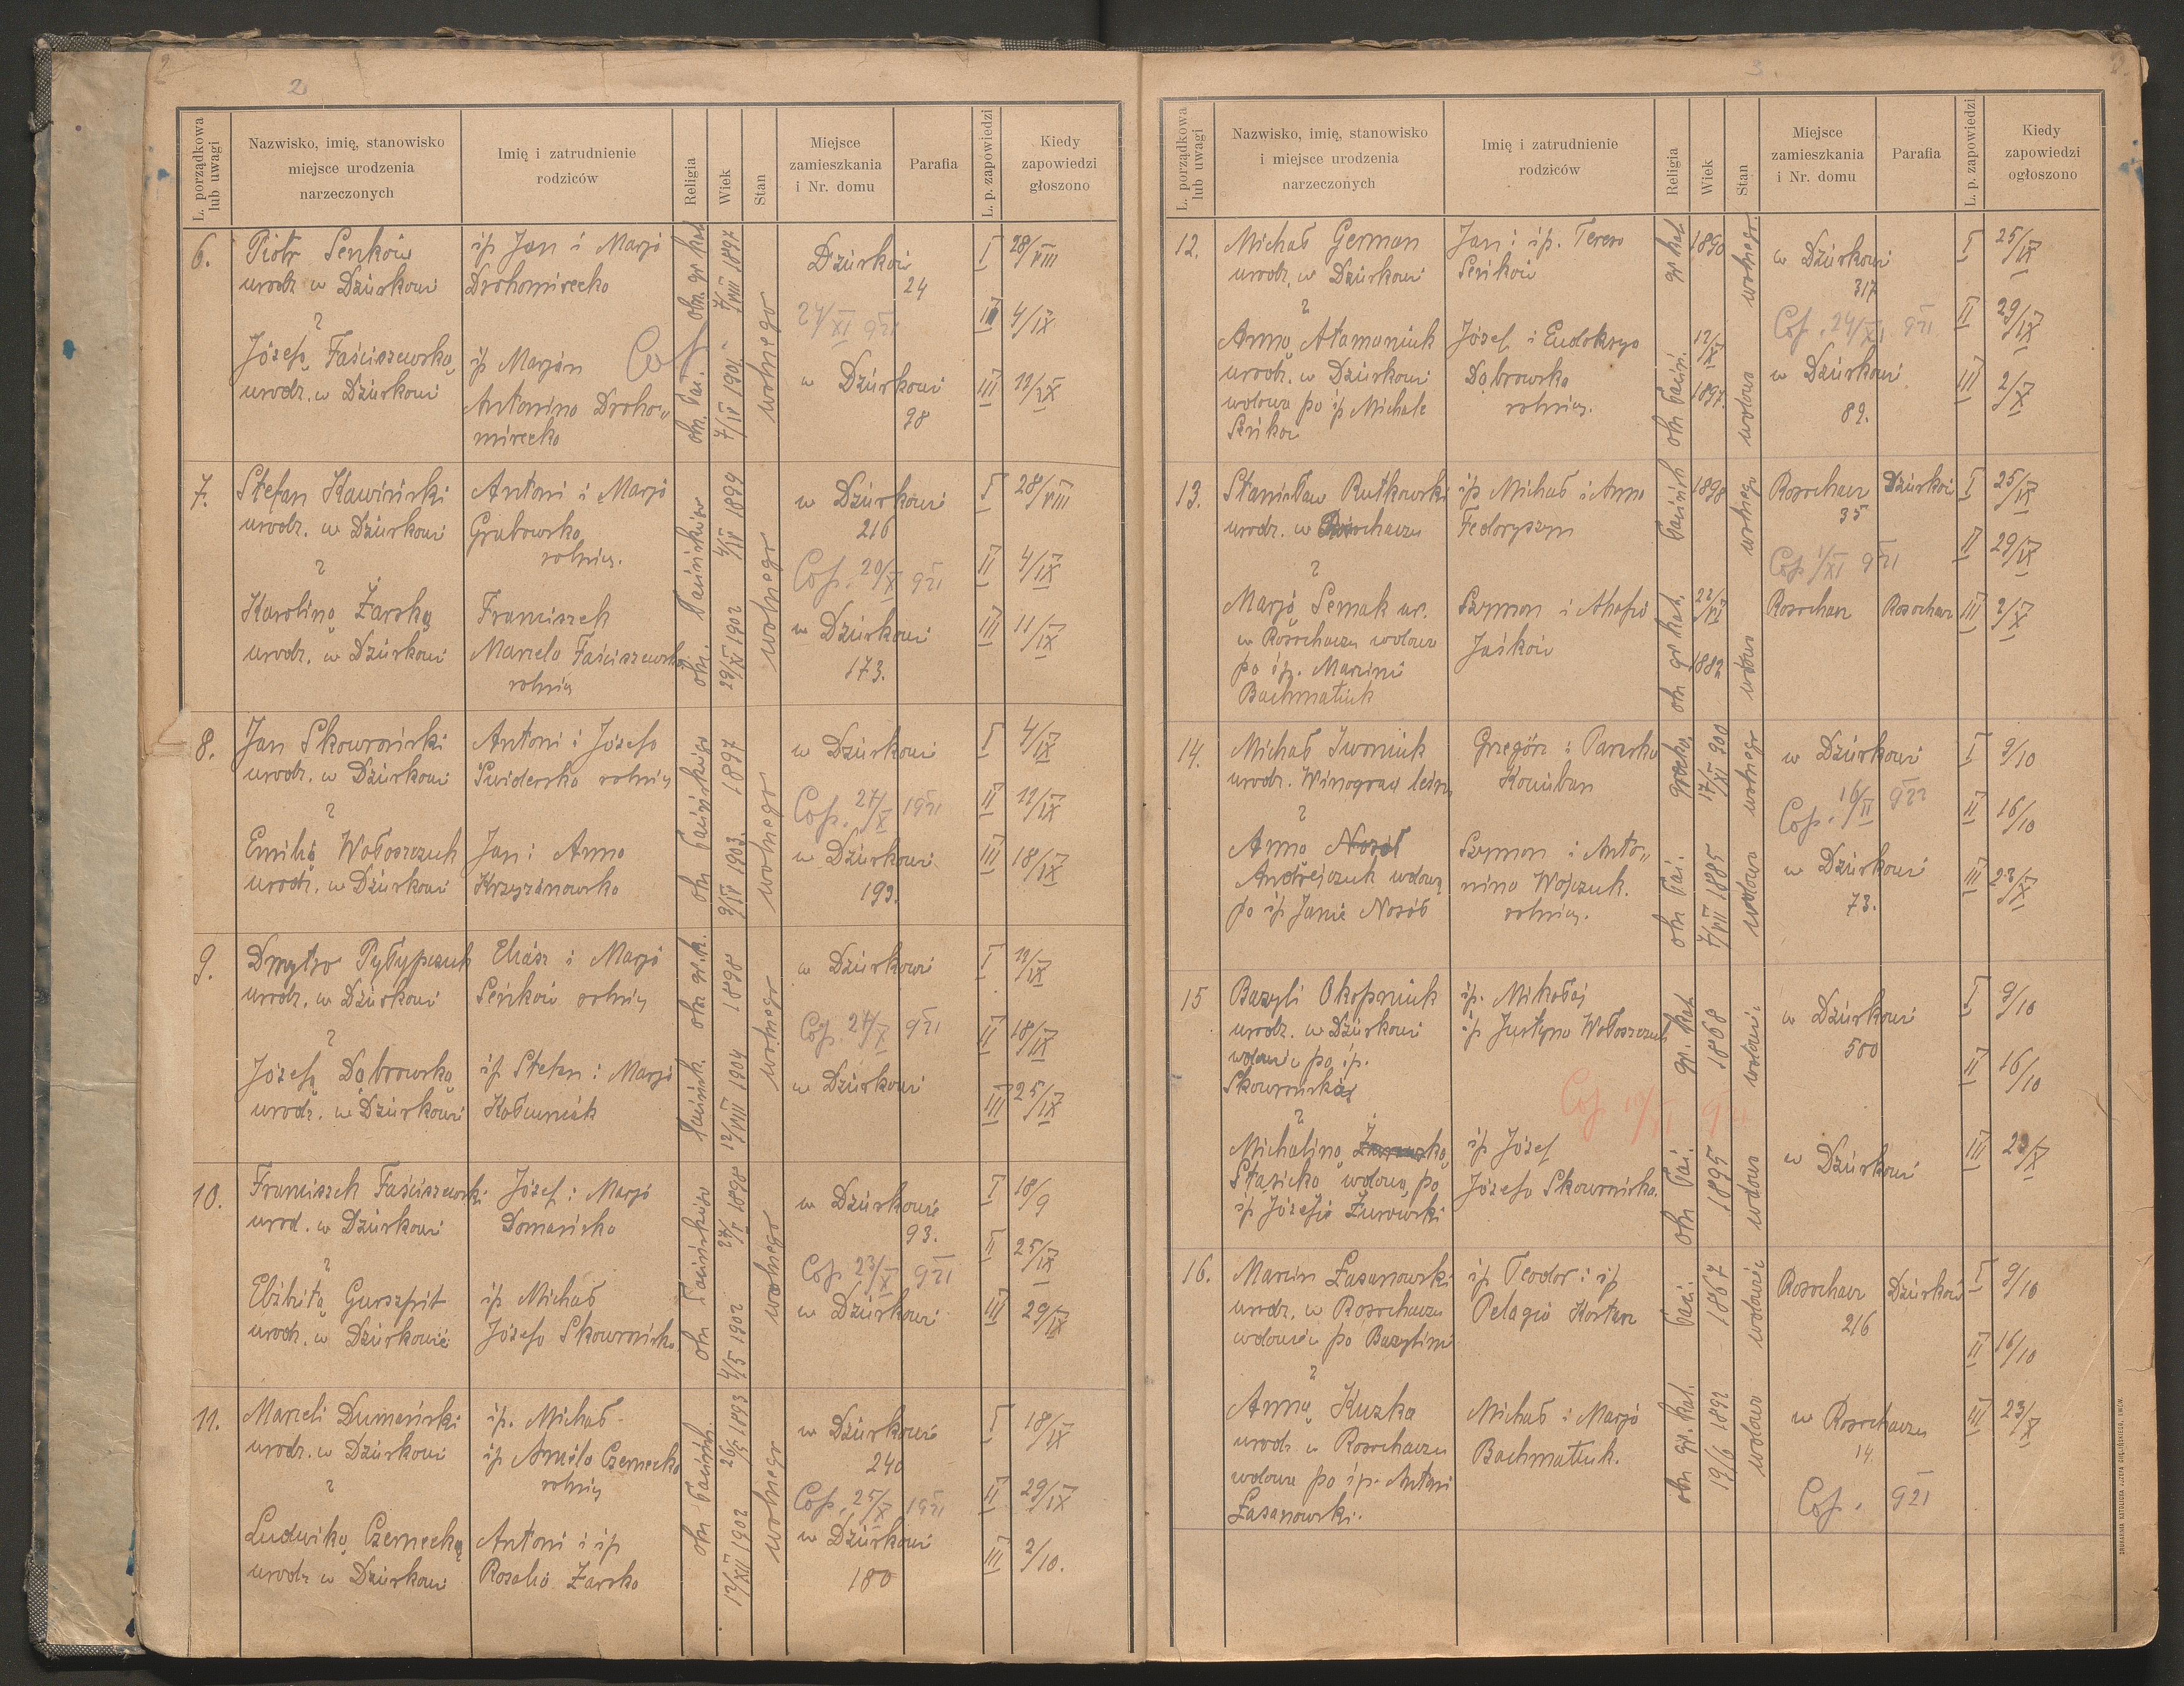 2
L. porządkowa lub uwagi
Nazwisko, imię, stanowisko
miejsce urodzenia
narzeczonych
Imię i zatrudnienie
rodziców
Religia
Wiek
Stan
Miejsce
zamieszkania
i Nr. domu
Parafia
L. p. zapowiedzi
Kiedy
zapowiedzi
głoszono
6.
Piotr Seńków
urodz. w Dżurkowi
Józefą Faściszewską
urodz. w Dżurkowi
śp Jan i Marjo
Drohomirecko
śp Marjan
Antonino Droho„
mirecko
ob. gr kat
ob. łać.
7/VIII 1897
7/IV 1901
wolnego
Dżurków
24
24/XI 921
w Dżurkowi
98
Cop
I 28/VIII
II 4/IX
III 11/IX
7.
Stefan Kawiński
urodz. w Dżurkowi
Karolina Żarską
urodz. w Dżurkowi
Antoni i Marjo
Grabowsko
rolnicy.
Franciszek
Marcelo Faściszewsko
rolnicy
ob. łacińskiego
4/IV 1899
29/XI 1902
wolnego
w Dżurkowi
216
Cop. 20/X 921
w Dżurkowi
173.
I 28/VIII
II 4/IX
III 11/IX
8.
Jan Skowroński
urodz. w Dżurkowi
Emilią Wołoszczuk
urodz. w Dżurkowi
Antoni i Józefo
Świdersko rolnicy
Jan i Anno
Krzyżanowsko
ob łacińskiego
1897
9/IV 1903.
wolnego
w Dżurkowi
Cop. 24/X 1921
w Dżurkowi
193.
I 4/IX
II 11/IX
III 18/IX
9.
Dmytro Pyłypczuk
urodz. w Dżurkowi
Józefą Dąbrowską
urodz. w Dżurkowi
Eliasz i Marjo
Seńków rolnicy
śp Stefan i Marjo
Kołcuniak
ob. gr. k.
łacińsk.
1898
12/VIII 1904
wolnego
w Dżurkowi
Cop. 24/X 921
w Dżurkowi
I 11/IX
II 18/IX
III 25/IX
10.
Franciszek Faściszewski
urod. w Dżurkowi
Elżbitą Gurszpit
urodz. w Dżurkowie
Józef i Marjo
Domańsko
śp Michał
Józefo Skowrońsko
ob łacińskiego
24/X 1898
4/5 1902
wolnego
w Dżurkowie
93.
Cop 23/X 921
w Dżurkowi
I 18/9
II 25/IX
III 29/IX
11.
Marceli Dumański
urodz. w Dżurkowi
Ludwiką Czernecką
urodz w Dżurkowi
śp. Michał
śp Anielo Czernecko
rolnicy
Antoni i śp
Rozalio Żarsko
ob łacińsk.
1893
12/XII 1902
wolnego
w Dżurkowie
240
Cop. 25/X 1921
w Dżurkowi
180
I 18/IX
II 29/IX
III 2/10.
3
L. porządkowa lub uwagi
Nazwisko, imię, stanowisko
i miejsce urodzenia
narzeczonych
Imię i zatrudnienie
rodziców
Religia
Wiek
Stan
Miejsce
zamieszkania
i Nr. domu
Parafia
L. p. zapowiedzi
Kiedy
zapowiedzi
ogłoszono
12.
Michał German
urodz. w Dżurkowi
Anną Atamaniuk
urodz. w Dżurkowi
wdowa po śp Michale
Seńków
Jan i śp. Tereso
Seńków
Józef i Eudoksyo
Dąbrowsko
rolnicy.
gr kat
ob łaciń.
1890
12/XI 1897.
wolnego
wdowa
w Dżurkowi
317
Cop. 24/XI 921
w Dżurkowi
89.
I 25/IX
II 29/IX
III 2/X
13.
Stanisław Rutkowski
urodz. w Rosochaczu
Marjo Semak ur.
w Rosochaczu wdowa
po śp. Marcinie
Bachmatiuk
śp Michał i Anno
Fedoryszyn
Szymon i Ahafio
Jaśków
łacińsk
ob gr kat.
1898
22/VI 1882
wolnego
wdowa
Rosochacz
35
Cop 1/XI 921
Rosochacz
Dżurków
Rosochacz
I 25/IX
II 29/IX
III 2/X
14.
Michał Iwoniuk
urodz. Winograd leśny
Anno Nosół
Andrejczuk wdową
po śp Janie Nosół
Grzegórz i Parasko
Kowuban
Szymon i Anto„
nino Wojczuk.
rolnicy.
grecko
ob łać.
17/XI 900
7/VII 1885
wolnego
wdowa
w Dżurkowi
Cop. 16/II 922
w Dżurkowi
73.
I 9/10
II 16/10
III 23/X
15
Bazyli Okopniuk
urodz. w Dżurkowi
wdowiec po śp.
Skowrońskiej
Michaliną
Stasicko wdową po
śp Józefie Żurowski
śp. Mikołaj
śp Justyno Wołoszczuk
śp Józef
Józefo Skowrońsko.
gr. kat
ob łać.
1868
1895
wdowiec
wdowa
w Dżurkowi
500
Cop
w Dżurkowi
I 9/10
II 16/10
III 23/X
16.
Marcin Łasanowski
urodz. w Rosochaczu
wdowiec po Bazylinie
Anną Kuzka
urodz w Rosochaczu
wdowa po śp. Antoni
Łasanowski.
śp Teodor i śp
Pelagio Kostan
Michał i Marjo
Bachmatiuk.
łać.
ob gr. kat.
1867
19/6 1892
wdowiec
wdowa
Rosochacz
216
w Rosochaczu
14.
Cop. 921
Dżurków
I 9/10
II 16/10
III 23/X